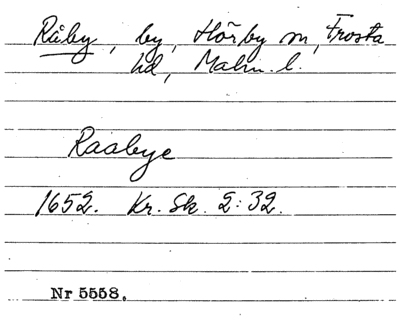 Råby, by, Hörby sn, Frosta
hd, Malm. l.
Raabye
1652. Kr. Sk. 2:32.
Nr 5558.